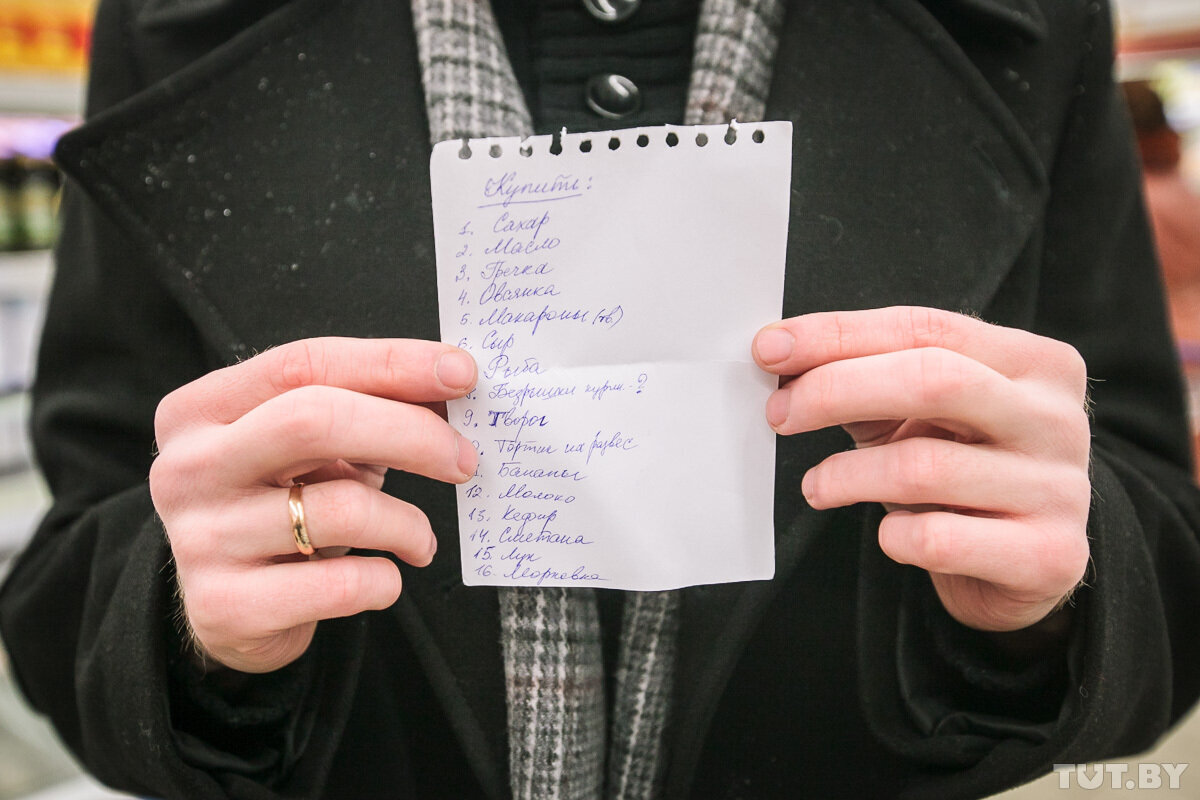 Купить:
1. Сахар
2. Масло
3. Гречка
4. Овсянка
5. Макароны (тв)
6. Сыр
Рыба
курин - ?
9. Творог
Тортик на развес
1. Бананы
12. Молоко
13. Кефир
14. Сметана
15. Лук
16. Морковка
TUT.BY